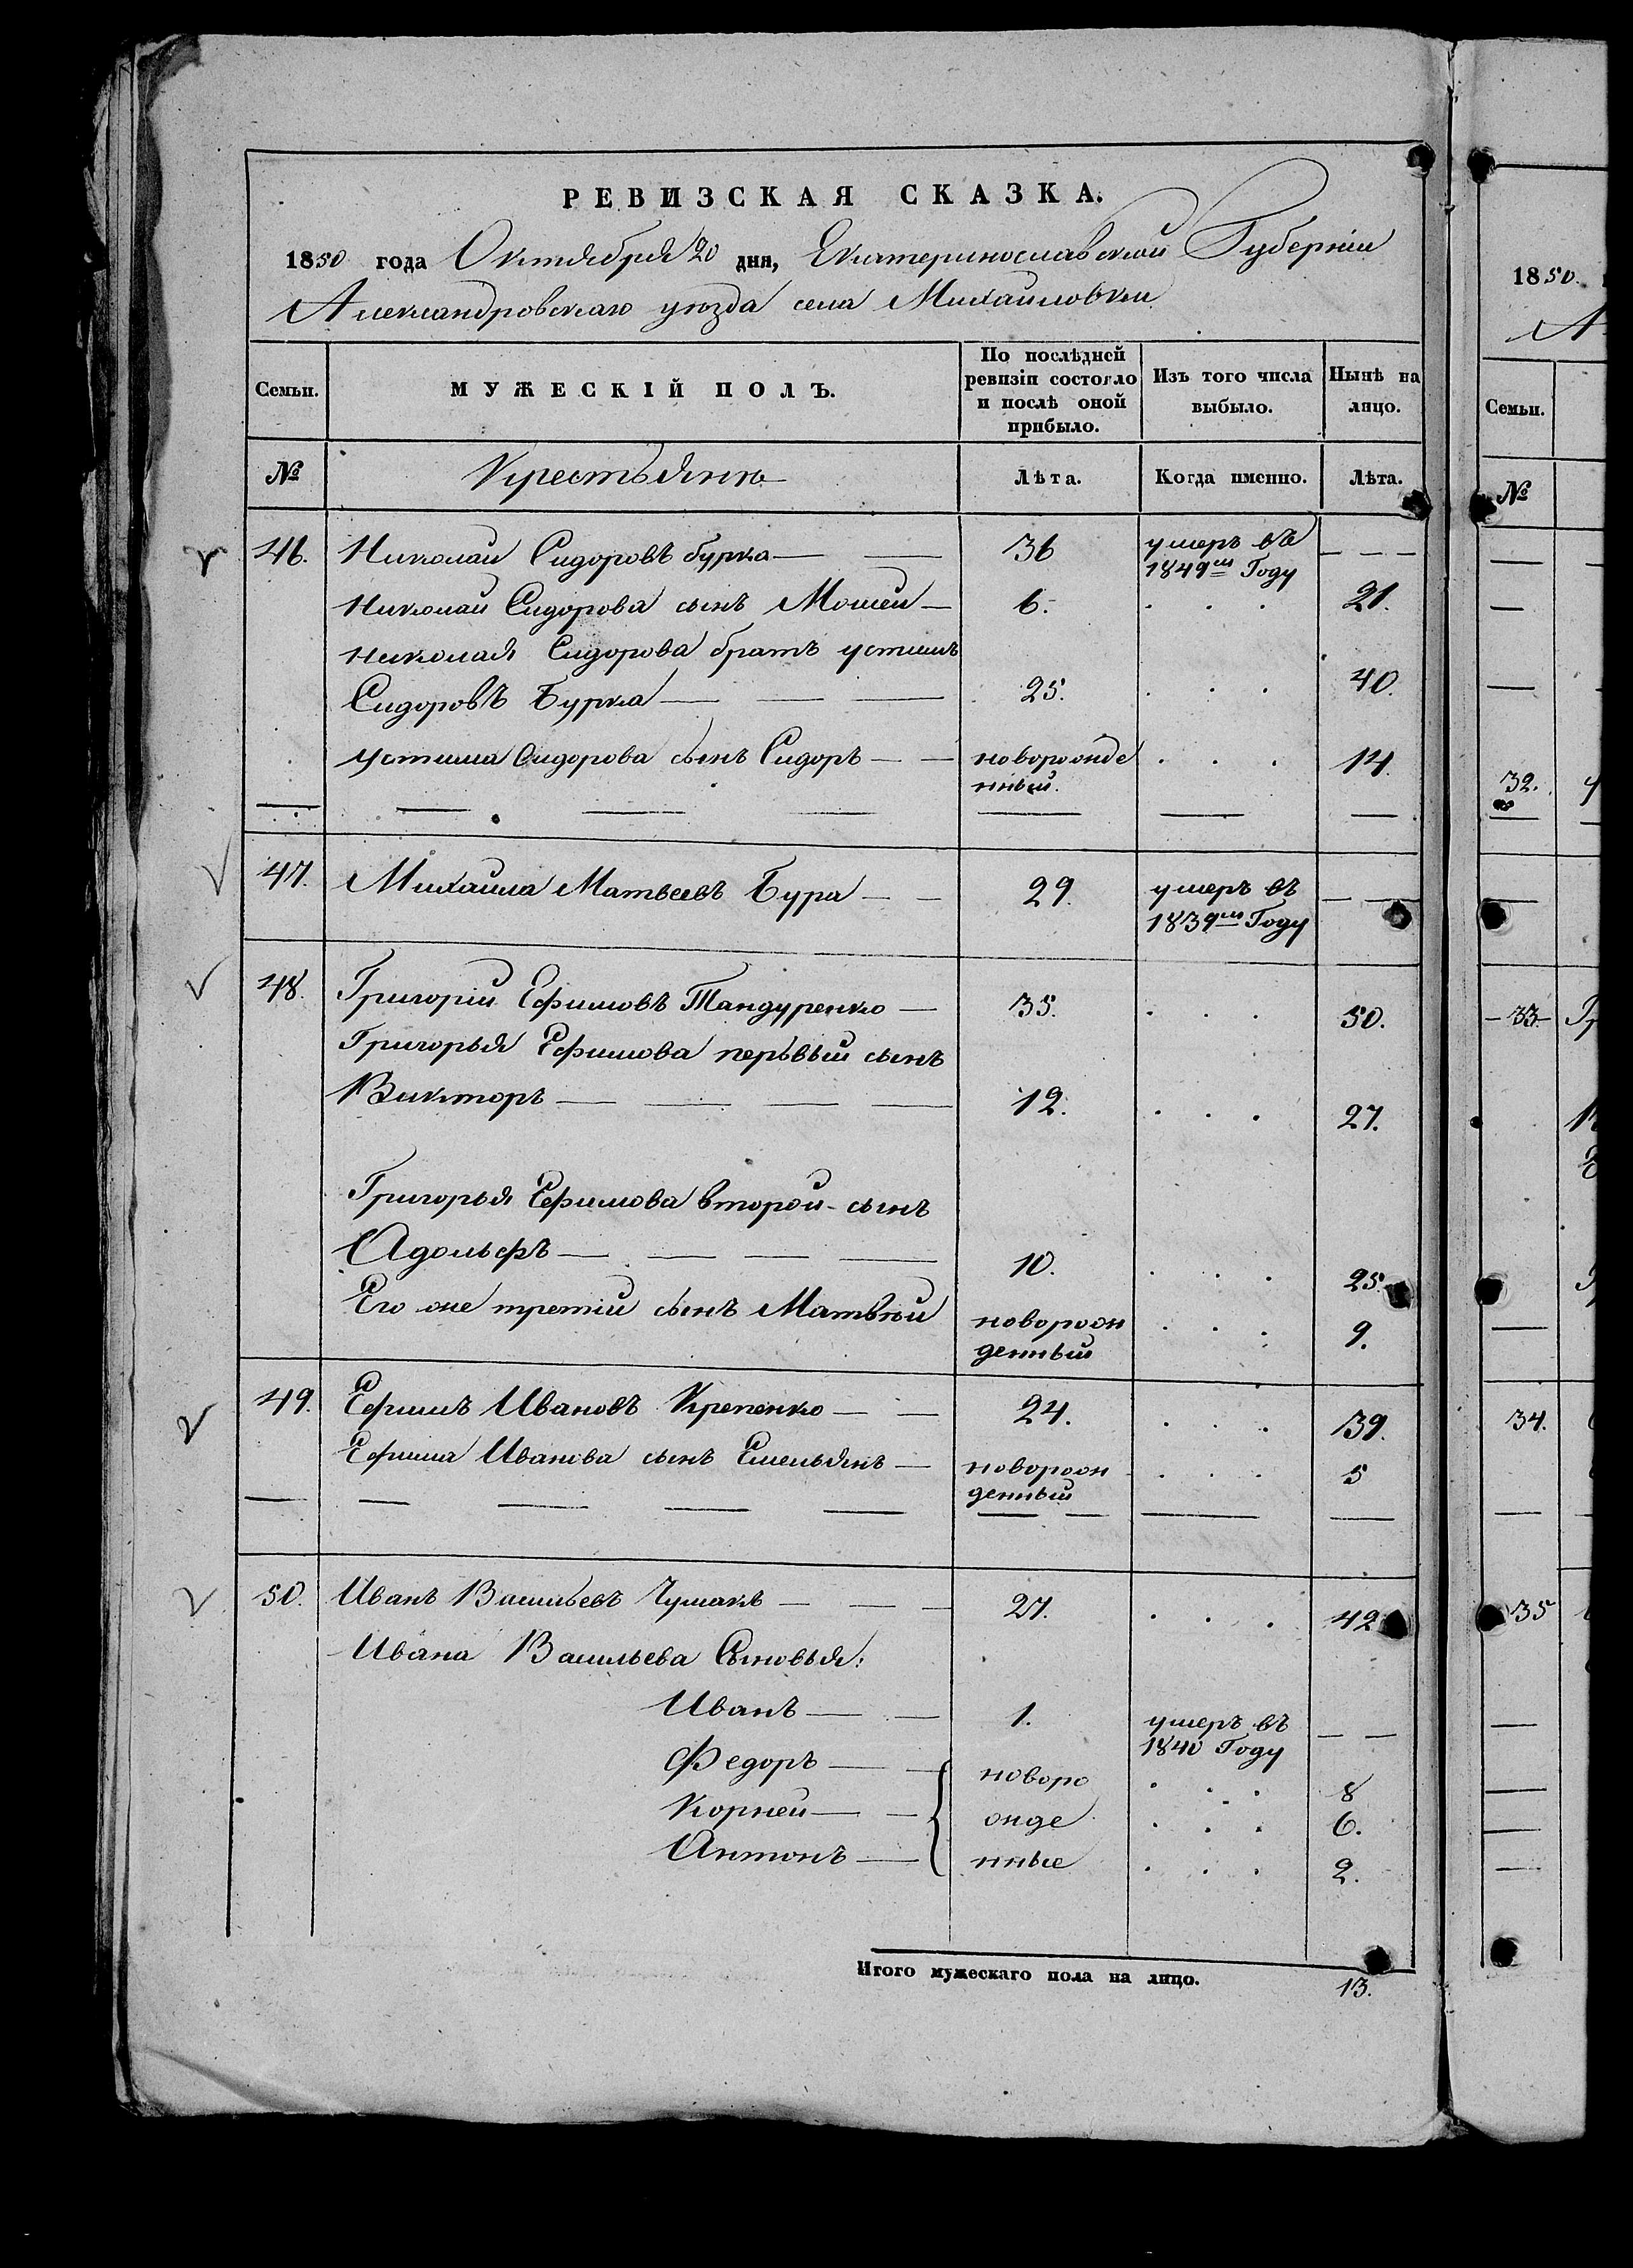 РЕВИЗСКАЯ СКАЗКА.
1850 года Октября 20 дня, Екатеринославской Губерніи
Александровскаго уѣзда села Михайловки
Семьи.
МУЖЕСКІЙ ПОЛЪ.
По послѣдней
ревизіи состояло
и послѣ оной
прибыло.
Изъ того числа
выбыло.
Нынѣ на
лицо.
№ Крестьянѣ Лѣта. Когда именно. Лѣта.
46. Николай Сидоровъ бурка 36 умеръ въ
1849мъ Году
Николай Сидорова сынъ Мосей 6. 21.
Николая Сидорова братъ устимъ
Сидоровъ Бурка 25. 40.
устима Сидорова сынъ Сидоръ новорожде 14.
нный.
47. Михайла Матвеевъ Бура 29. умеръ въ
1839мъ Году
48. Григорій Ефимовъ Тандуренко 35. 50.
Григорья Ефимова перьвый сынъ
Викторъ 12. 27.
Григорья Ефимова второй сынъ
Адольфъ 10. 25.
Его же третій сынъ Матвѣй новорож 9.
денный
49. Ефимъ Ивановъ Крепенко 24. 39.
Ефима Иванова сынъ Емельянъ новорож 5
денный
50. Иванъ Васильевъ Чумакъ 27. 42
Ивана Васильева Сыновья:
Иванъ 1. умеръ въ
1840 Году
Федоръ новоро 8
Корней жде 6.
Антонъ нные 2.
Итого мужескаго пола на лицо. 13.
1850.
А
Семьи.
№
32.
33. Гр
34.
35